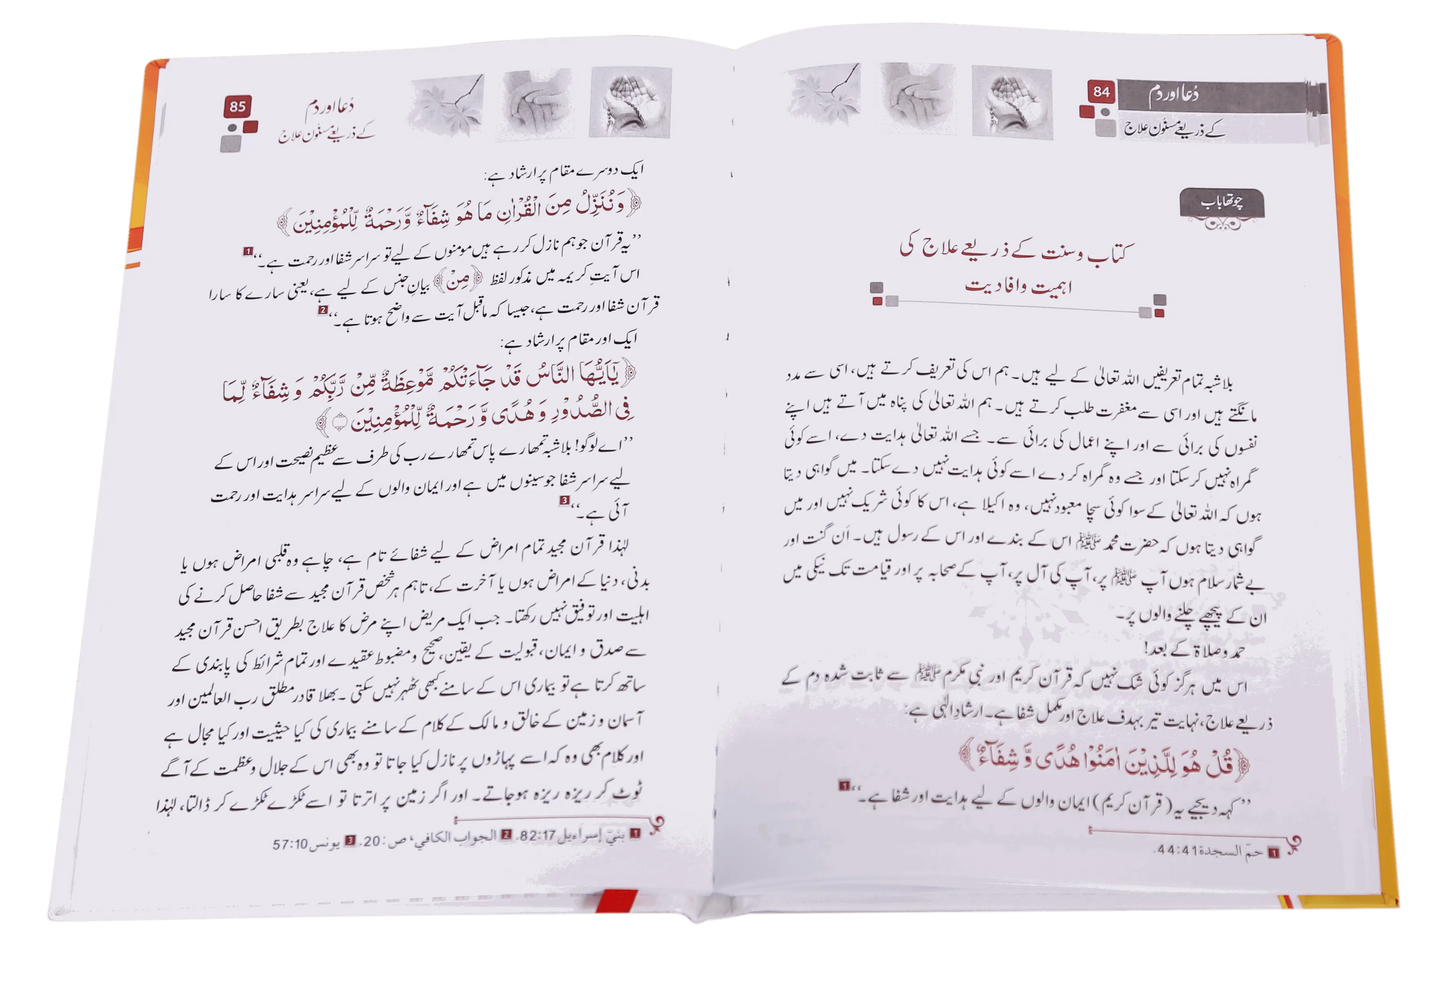 84
دُعا اور دم
کے ذریعے مسنون علاج
چوتھا باب
کتاب وسنت کے ذریعے علاج کی
اہمیت وافادیت
بلاشبہ تمام تعریفیں اللہ تعالیٰ کے لیے ہیں۔ ہم اس کی تعریف کرتے ہیں، اسی سے مدد
مانگتے ہیں اور اسی سے مغفرت طلب کرتے ہیں۔ ہم اللہ تعالیٰ کی پناہ میں آتے ہیں اپنے
نفسوں کی برائی سے اور اپنے اعمال کی برائی سے۔ جسے اللہ تعالیٰ ہدایت دے، اسے کوئی
گمراہ نہیں کرسکتا اور جسے وہ گمراہ کر دے اسے کوئی ہدایت نہیں دے سکتا۔ میں گواہی دیتا
ہوں کہ اللہ تعالیٰ کے سوا کوئی سچا معبود نہیں، وہ اکیلا ہے، اس کا کوئی شریک نہیں اور میں
گواہی دیتا ہوں کہ حضرت محمد ﷺ اس کے بندے اور اس کے رسول ہیں۔ اَن گنت اور
بے شمار سلام ہوں آپ ﷺ پر، آپ کی آل پر، آپ کے صحابہ پر اور قیامت تک نیکی میں
ان کے پیچھے چلنے والوں پر۔
حمد وصلاۃ کے بعد!
اس میں ہرگز کوئی شک نہیں کہ قرآن کریم اور نبی مکرم ﷺ سے ثابت شدہ دم کے
ذریعے علاج، نہایت تیر بہدف علاج اور مکمل شفا ہے۔ ارشاد الٰہی ہے:
﴿قُلْ هُوَ لِلَّذِيْنَ اٰمَنُوْا هُدًى وَّشِفَآءٌ﴾
”کہہ دیجیے یہ (قرآن کریم) ایمان والوں کے لیے ہدایت اور شفا ہے۔“ 1
1 حمٓ السجدة 44:41.
85
دُعا اور دم
کے ذریعے مسنون علاج
ایک دوسرے مقام پر ارشاد ہے:
﴿وَنُنَزِّلُ مِنَ الْقُرْاٰنِ مَا هُوَ شِفَآءٌ وَّرَحْمَةٌ لِّلْمُؤْمِنِيْنَ﴾
”یہ قرآن جو ہم نازل کر رہے ہیں مومنوں کے لیے تو سراسر شفا اور رحمت ہے۔“ 1
اس آیتِ کریمہ میں مذکور لفظ ﴿مِنْ﴾ بیانِ جنس کے لیے ہے، یعنی سارے کا سارا
قرآن شفا اور رحمت ہے، جیسا کہ ماقبل آیت سے واضح ہوتا ہے۔“ 2
ایک اور مقام پر ارشاد ہے:
﴿يٰٓاَيُّهَا النَّاسُ قَدْ جَآءَتْكُمْ مَّوْعِظَةٌ مِّنْ رَّبِّكُمْ وَشِفَآءٌ لِّمَا
فِى الصُّدُوْرِ وَهُدًى وَّرَحْمَةٌ لِّلْمُؤْمِنِيْنَ﴾
”اے لوگو! بلاشبہ تمھارے پاس تمھارے رب کی طرف سے عظیم نصیحت اور اس کے
لیے سراسر شفا جو سینوں میں ہے اور ایمان والوں کے لیے سراسر ہدایت اور رحمت
آئی ہے۔“ 3
لہٰذا قرآن مجید تمام امراض کے لیے شفائے تام ہے، چاہے وہ قلبی امراض ہوں یا
بدنی، دنیا کے امراض ہوں یا آخرت کے، تاہم ہر شخص قرآن مجید سے شفا حاصل کرنے کی
اہلیت اور توفیق نہیں رکھتا۔ جب ایک مریض اپنے مرض کا علاج بطریق احسن قرآن مجید
سے صدق و ایمان، قبولیت کے یقین، صحیح ومضبوط عقیدے اور تمام شرائط کی پابندی کے
ساتھ کرتا ہے تو بیماری اس کے سامنے کبھی ٹھہر نہیں سکتی۔ بھلا قادرِ مطلق رب العالمین اور
آسمان و زمین کے خالق و مالک کے کلام کے سامنے بیماری کی کیا حیثیت اور کیا مجال ہے
اور کلام بھی وہ کہ اسے پہاڑوں پر نازل کیا جاتا تو وہ بھی اس کے جلال و عظمت کے آگے
ٹوٹ کر ریزہ ریزہ ہوجاتے۔ اور اگر زمین پر اترتا تو اسے ٹکڑے ٹکڑے کر ڈالتا، لہٰذا
1 بنيٓ إسرآءيل 82:17. 2 الجواب الكافي، ص:20. 3 يونس 57:10